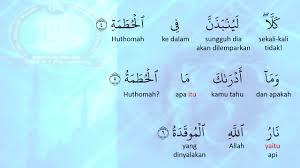 كَلَّاۖ لَيُنۢبَذَنَّ فِى ٱلۡحُطَمَةِ ٤
Huthomah ke dalam sungguh dia sekali-kali
akan dilemparkan tidak!
وَمَآ أَدۡرَىٰكَ مَا ٱلۡحُطَمَةُ ٥
Huthomah? apa itu kamu tahu dan apakah
نَارُ ٱللَّهِ ٱلۡمُوقَدَةُ ٦
yang Allah yaitu
dinyalakan api